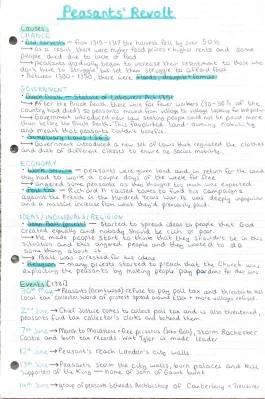 Peasants' Revolt
Causes
CHANCE
Bad harvests - From 1315-1317 the harvest fell by over 50%
As a result, there were higher food prices + higher rents and some
people died due to lack of food
Peasants gradually began to increase their resentment to those who
don't have to struggle but let them struggle to afford food
Between 1350 - 1380, there were bloody struggle + famine
GOVERNMENT
Black Death - Statute of Labourers Act 1351
After the Black Death, there were far fewer workers (30-50% of the
country had died) so peasants moved from village to village looking for
Government introduced new law saying people could not be paid more
than before the Black Death. This
and meant that peasants couldn't benefit.
Sumptuary Laws
Government introduced a new set of laws that regulated the clothes
and diet of different classes to ensure no social mobility.
ECONOMY
Work Service - peasants were given land and in return for the land
they had to work a couple days of the week for free.
angered some peasants as they thought too much was expected.
Poll Tax - Rich and II raised taxes to fund his campaigns
against the French in the Hundred Years War. It was deeply unpopular
and a massive increase from what they'd previously paid.
IDEAS/INDIVIDUALS/RELIGION
John Ball (priest) - Started to spread ideas to people that God
created equality and nobody should be rich or poor
He made people start to think that they shouldn't be in this
situation and this angered people and they wanted to do
something about it
Ball was arrested for his ideas
Religion - many priests started to preach that the Church was
exploiting the peasants by making people pay pardons for their sins
Events (1381)
30th May - Peasants (Brentwood) refuse to pay poll tax and threaten to kill
local tax collector. Word of protest spread around Essex + more villages refused.
2nd June - Chief Justice comes to collect poll tax and is also threatened,
peasants find tax collector's clerks and behead them.
7th June - March to Maidstone + free prisoners (John Ball), storm Rochester
Castle and burn tax records. Wat Tyler is made leader
12th June - Peasants reach London's city walls
13th June - Peasants storm the city walls, burn palaces and kill
supporters of the King - home of John of Gaunt burnt
14th June - group of peasants beheads Archbishop of Canterbury + Treasurer